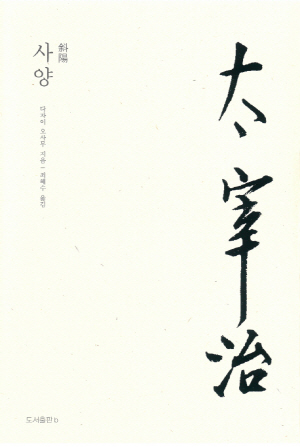 斜陽
사양
다자이 오사무 지음 - 최혜수 옮김
太宰治
도서출판 b